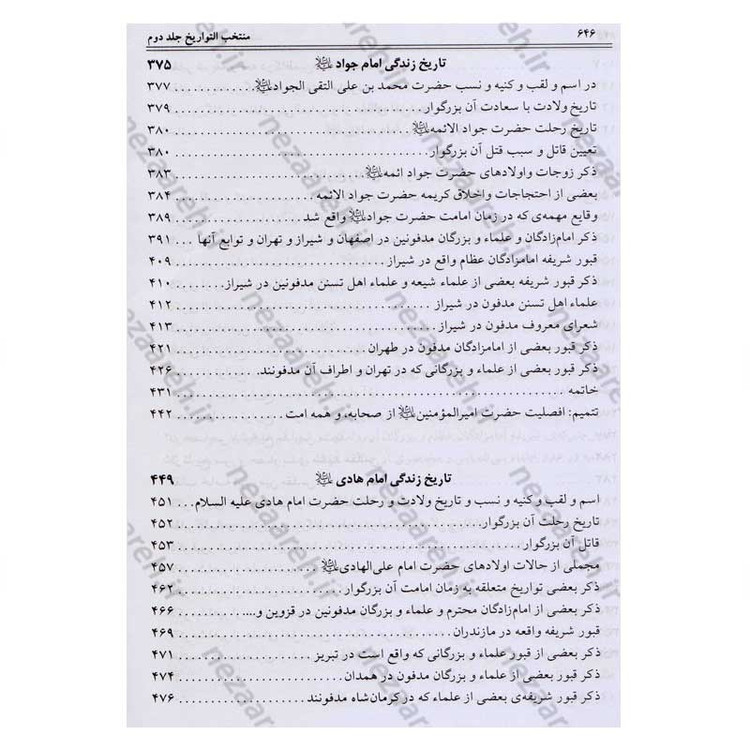 ۶۴۶ منتخب التواریخ جلد دوم
تاریخ زندگی امام جواد علیه‌السلام ۳۷۵
در اسم و لقب و کنیه و نسب حضرت محمد بن علی التقی الجواد علیه‌السلام ........... ۳۷۷
تاریخ ولادت با سعادت آن بزرگوار ........... ۳۷۹
تاریخ رحلت حضرت جواد الائمه علیه‌السلام ........... ۳۸۰
تعیین قاتل و سبب قتل آن بزرگوار ........... ۳۸۰
ذکر زوجات واولادهای حضرت جواد ائمه علیه‌السلام ........... ۳۸۳
بعضی از احتجاجات واخلاق کریمه حضرت جواد الائمه ........... ۳۸۴
وقایع مهمه‌ی که در زمان امامت حضرت جواد علیه‌السلام واقع شد ........... ۳۸۹
ذکر امام‌زادگان و علماء و بزرگان مدفونین در اصفهان و شیراز و تهران و توابع آنها ... ۳۹۱
قبور شریفه امامزادگان عظام واقع در شیراز ........... ۴۰۹
ذکر قبور شریفه بعضی از علماء شیعه و علماء اهل تسنن مدفونین در شیراز ........... ۴۱۰
علماء اهل تسنن مدفون در شیراز ........... ۴۱۲
شعرای معروف مدفون در شیراز ........... ۴۱۳
ذکر قبور بعضی از امامزادگان مدفون در طهران ........... ۴۲۱
ذکر قبور بعضی از علماء و بزرگانی که در تهران و اطراف آن مدفونند. ........... ۴۲۶
خاتمه ........... ۴۳۱
تتمیم: افصلیت حضرت امیرالمؤمنین علیه‌السلام از صحابه، و همه امت ........... ۴۴۲
تاریخ زندگی امام هادی علیه‌السلام ۴۴۹
اسم و لقب و کنیه و نسب و تاریخ ولادت و رحلت حضرت امام هادی علیه السلام... ۴۵۱
تاریخ رحلت آن بزرگوار ........... ۴۵۲
قاتل آن بزرگوار ........... ۴۵۳
مجملی از حالات اولادهای حضرت امام علی‌الهادی علیه‌السلام ........... ۴۵۷
ذکر بعضی تواریخ متعلقه به زمان امامت آن بزرگوار ........... ۴۶۲
ذکر بعضی از امام‌زادگان محترم و علماء و بزرگان مدفونین در قزوین و.... ........... ۴۶۶
قبور شریفه واقعه در مازندران ........... ۴۶۹
ذکر بعضی از قبور علماء و بزرگانی که واقع است در تبریز ........... ۴۷۱
ذکر بعضی از علماء و بزرگان مدفون در همدان ........... ۴۷۴
ذکر قبور شریفه‌ی بعضی از علماء که در کرمان‌شاه مدفونند ........... ۴۷۶
nezaareh.ir